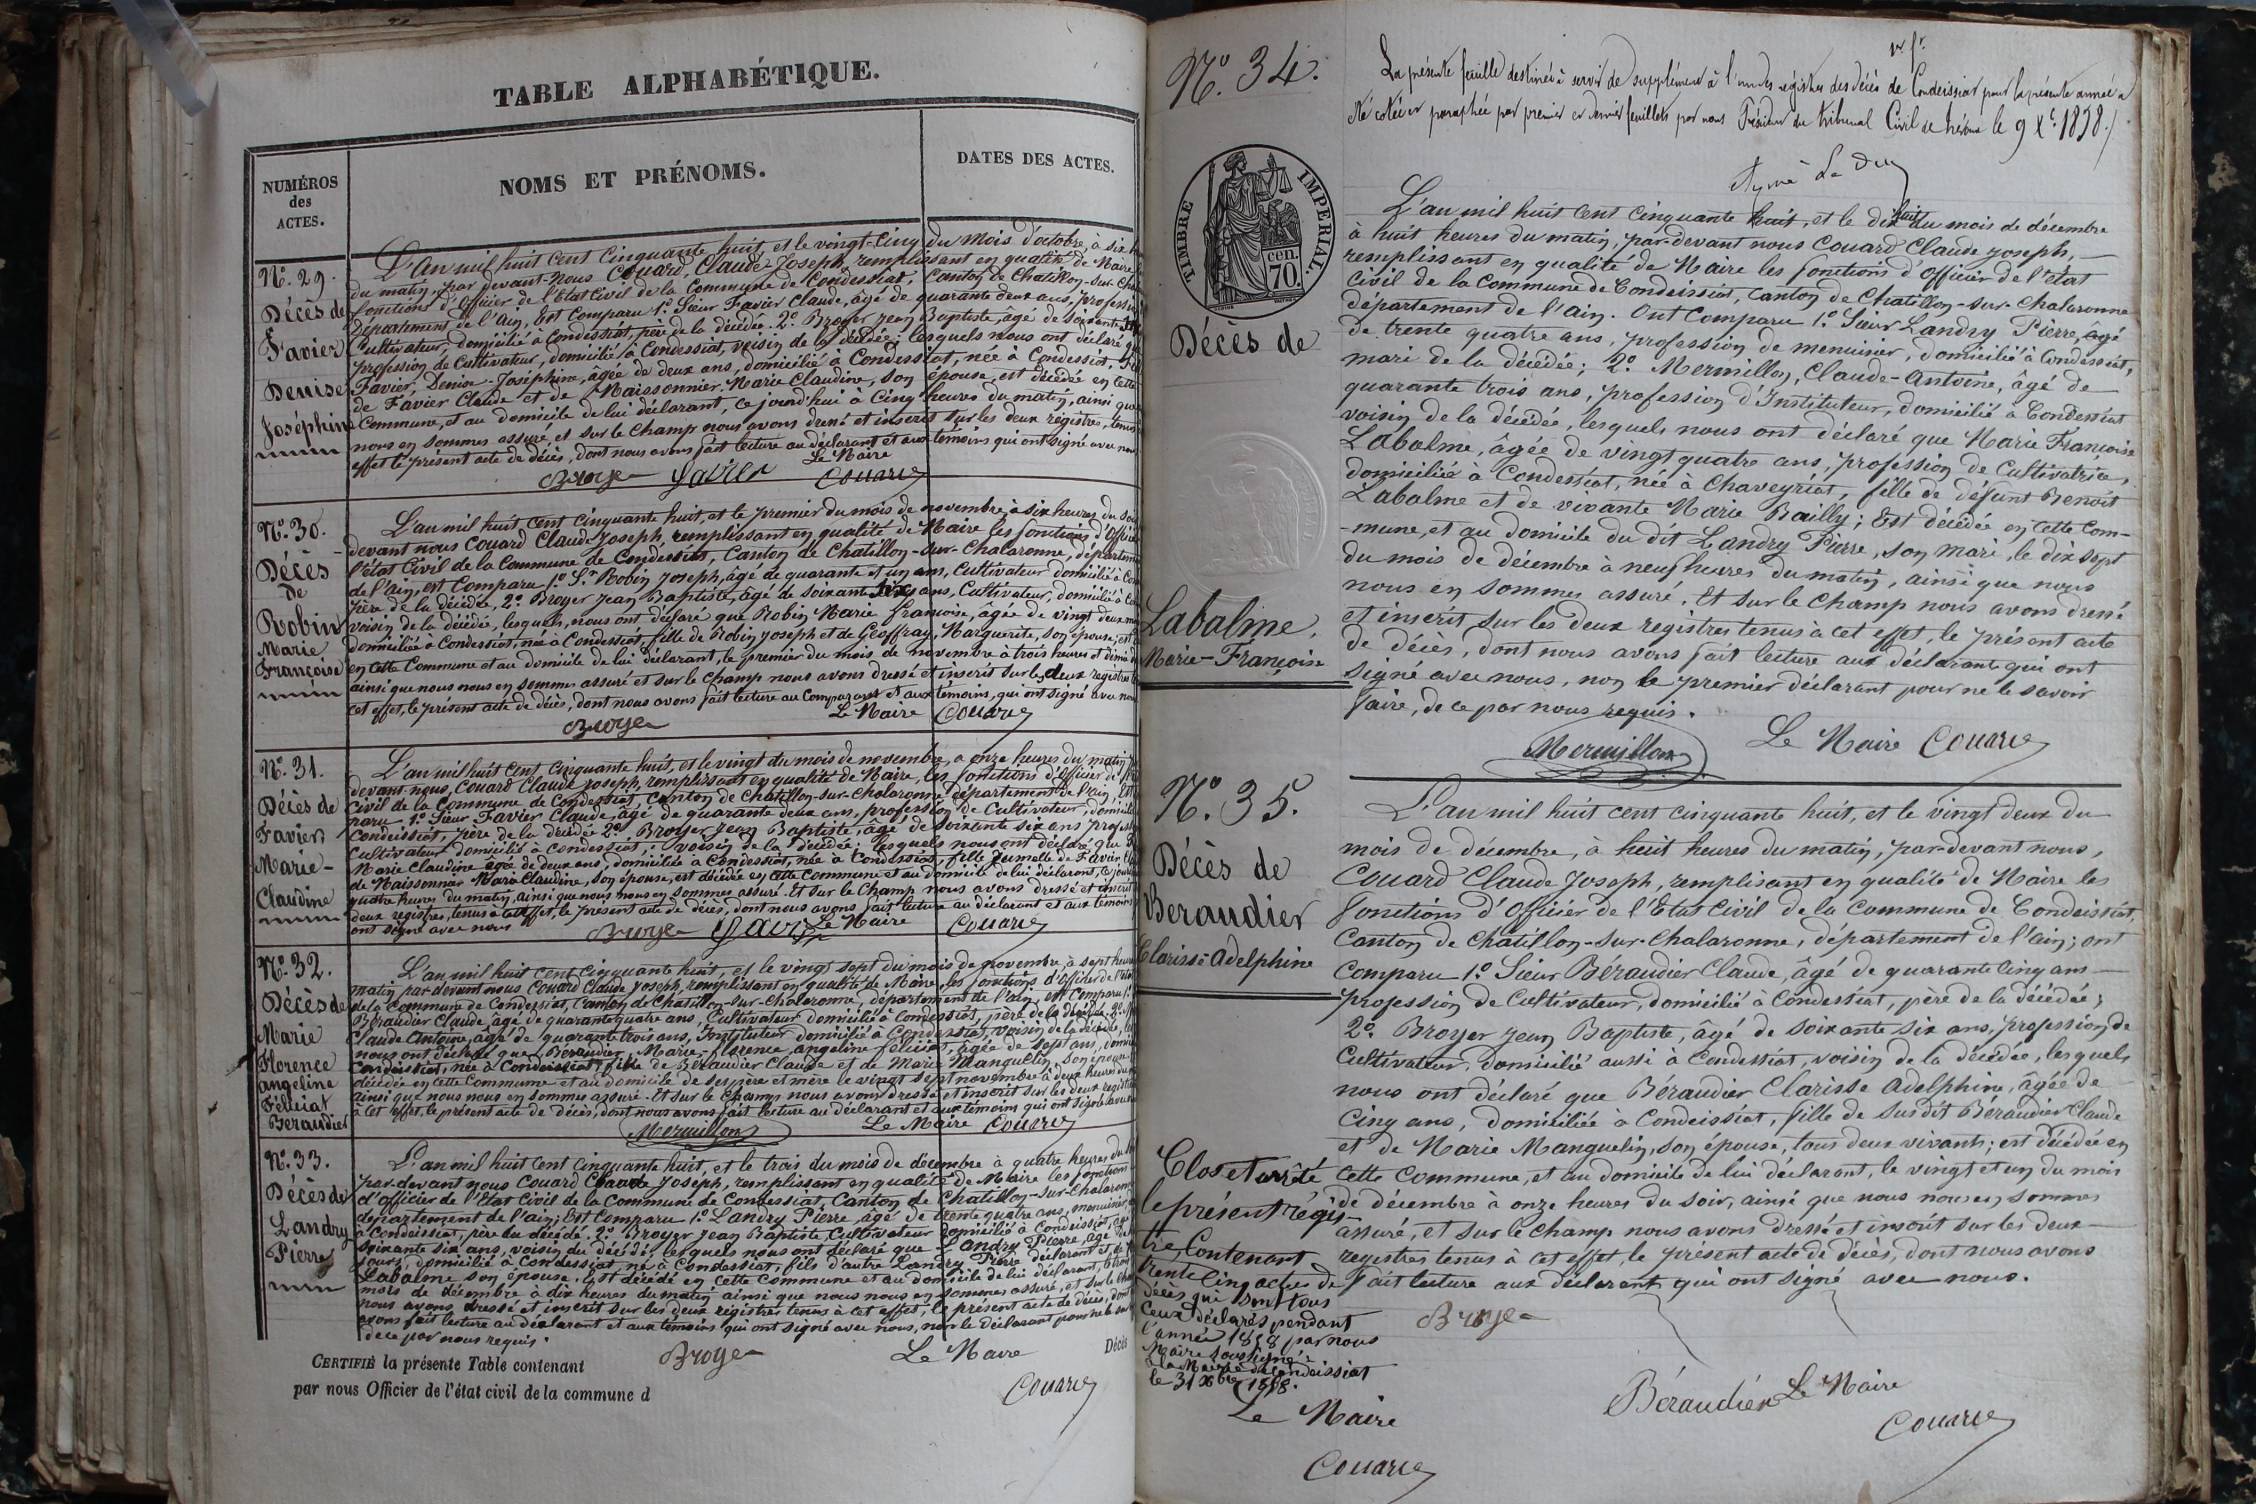 TABLE ALPHABÉTIQUE.
NUMÉROS
des
ACTES.
NOMS ET PRÉNOMS.
DATES DES ACTES.
N.º 29.
Décès de
Favier
Denise
Joséphine
L'an mil huit cent cinquante huit, et le vingt-cinq du mois d'octobre, à six h
du matin, par devant-nous Couard, Claude-Joseph, remplissant en qualité de Maire
fonctions d'Officier de l'Etat Civil de la Commune de Condeissiat, Canton de Chatillon-sur-Cha
Département de l'Ain, Est Comparu 1.º Sieur Favier Claude, âgé de quarante deux ans, professi
Cultivateur, domicilié à Condessiat, père de la décédée. 2.º Broyer Jean Baptiste, âgé de soixante six
profession de Cultivateur, domicilié à Condessiat, voisin de la décédée; lesquels nous ont déclaré q
Favier, Denise-Joséphine, âgée de deux ans, domicilié à Condessiat, née à Condessiat, fil
de Favier Claude et de Maissonnier Marie Claudine, son épouse, est décédée en cette
Commune, et au domicile de lui déclarant, ce jourd'hui à cinq heures du matin, ainsi que
nous en sommes assuré, et sur le champ nous avons dressé et inscrit sur les deux registres, tenus
effet le présent acte de décès, dont nous avons fait lecture au déclarant et aux témoins qui ont signé avec nous
Le Maire
Broye Favier Couard
N.º 30.
Décès
De
Robin
Marie
Françoise
L'an mil huit cent cinquante huit, et le premier du mois de novembre à six heures du soi
devant nous Couard Claude Joseph, remplissant en qualité de Maire les fonctions d'Offici
l'état Civil de la Commune de Condessiat, Canton de Chatillon-sur-Chalaronne, départem
de l'ain, est Comparu 1.º S.r Robin Joseph, âgé de quarante et un ans, Cultivateur domicilié à Con
père de la décédée, 2.º Broyer Jean Baptiste, âgé de soixante six ans, Cultivateur, domicilié à Co
voisin de la décédée, lesquels, nous ont déclaré que Robin Marie françoise, âgée de vingt deux
domiciliée à Condessiat, née à Condessiat, fille de Robin Joseph et de Geoffray, Marguerite, son épouse, est
en cette Commune et au domicile de lui déclarant, le premier du mois de novembre à trois heures et demie d
ainsi que nous nous en sommes assuré et sur le champ nous avons dressé et inscrit sur les deux registres t
cet effet, le présent acte de décès, dont nous avons fait lecture au Comparant et aux témoins, qui ont signé avec nous
Broye Le Maire Couard
N.º 31.
Décès de
Favier,
Marie-
Claudine
L'an mil huit cent cinquante huit, et le vingt du mois de novembre, à onze heures du matin
devant-nous, Couard Claude Joseph, remplissant en qualité de Maire, les fonctions d'Officier de l'
Civil de la Commune de Condessiat, Canton de Chatillon-sur-Chalaronne département de l'ain, Est
paru 1.º Sieur Favier Claude, âgé de quarante deux ans, profession de Cultivateur, domicilié
Condeissiat, père de la décédée 2.º Broyer Jean Baptiste, âgé de soixante six ans profess
Cultivateur domicilié à Condessiat, voisin de la décédée; lesquels nous ont déclaré que F
Marie Claudine âgée de deux ans, domiciliée à Condessiat, née à Condessiat, fille Jumelle de Favier Cla
de Maissonnar Marie Claudine, son épouse, est décédée en cette Commune et au domicile de lui déclarant, ce jourd
quatre heures du matin, ainsi que nous nous en sommes assuré. Et sur le champ nous avons dressé et inscrit
deux registres, tenus à cet effet, le présent acte de décès, dont nous avons fait lecture au déclarant et aux témoins
ont signé avec nous Broye Favier Le Maire Couard
N.º 32.
Décès de
Marie
Florence
angeline
Féliciat
Beraudier
L'an mil huit cent cinquante huit, et le vingt sept du mois de novembre, à sept heures
matin par-devant nous Couard Claude Joseph, remplissant en qualité de Maire, les fonctions d'Officier de l'éta
de la Commune de Condessiat, Canton de Chatillon-sur-Chalaronne, département de l'ain, est Comparu 1.º
Béraudier Claude, âgé de quarante quatre ans, Cultivateur domicilié à Condessiat, père de la décédée. 2.º
Claude Antoine, âgé de quarante trois ans, Instituteur domicilié à Condessiat, voisin de la décédée, le
nous ont déclaré que Béraudier, Marie, florence, angeline féliciat, âgée de sept ans, domi
Condeissiat, née à Condeissiat, fille de Béraudier Claude et de Marie Manguelin, son épouse
décédée en cette Commune et au domicile de ses père et mère le vingt sept novembre à deux heures du
ainsi que nous nous en sommes assuré. Et sur le champ nous avons dressé et inscrit sur les deux registres
à cet effet, le présent acte de décès, dont nous avons fait lecture au déclarant et aux témoins qui ont signé avec nous
Mermillon Le Maire Couard
N.º 33.
Décès de
Landry
Pierre
L'an mil huit cent cinquante huit, et le trois du mois de décembre à quatre heures du so
par-devant nous Couard Claude Joseph, remplissant en qualité de Maire les fonctions
d'officier de l'Etat Civil de la Commune de Condessiat, Canton de Chatillon-sur-Chalaronne
département de l'ain; Est Comparu 1.º Landry Pierre, âgé de trente quatre ans, menuisier
à Condeissiat, père du décédé. 2.º Broyer Jean Baptiste, Cultivateur domicilié à Condeissiat, âgé
soixante six ans, voisin du décédé, lesquels nous ont déclaré que Landry Pierre, âgé de
jours, domicilié à Condessiat, né à Condessiat, fils d'autre Landry Pierre déclarant et de
Labalme son épouse. Est décédé en cette Commune et au domicile de lui déclarant, le trois
mois de décembre à dix heures du matin ainsi que nous nous en sommes assuré, et sur le cha
nous avons dressé et inscrit sur les deux registres tenus à cet effet, le présent acte de décès, dont
avons fait lecture au déclarant et aux témoins qui ont signé avec nous, non le déclarant pour ne le sav
de ce par nous requis.
Broye Le Maire
Couard
Décès
CERTIFIÉ la présente Table contenant
par nous Officier de l'état civil de la commune d
N.º 34.
La présente feuille destinée à servir de supplément à l'un des régistres des décès de Condeissiat pour la présente année a
été cotée et paraphée par premier et dernier feuillets par nous Président du tribunal Civil de Trévoux le 9 X.e 1858./
TIMBRE IMPÉRIAL.
cen.
70.
Décès de
Labalme,
Marie-Françoise
L'an mil huit cent cinquante huit, et le dix huit du mois de décembre
à huit heures du matin, par-devant nous Couard Claude Joseph,
remplissant en qualité de Maire les fonctions d'officier de l'état
Civil de la Commune de Condeissiat, Canton de Chatillon-sur-Chalaronne
département de l'ain. Ont Comparu 1.º Sieur Landry Pierre, âgé
de trente quatre ans, profession de menuisier, domicilié à Condessiat,
mari de la décédée; 2.º Mermillon, Claude-Antoine, âgé de
quarante trois ans, profession d'Instituteur, domicilié à Condessiat
voisin de la décédée, lesquels nous ont déclaré que Marie Françoise
Labalme, âgée de vingt quatre ans, profession de Cultivatrice,
domiciliée à Condessiat, née à Chaveyriat, fille de défunt Benoit
Labalme et de vivante Marie Bailly; Est décédée en cette Com-
-mune, et au domicile du dit Landry Pierre, son mari, le dix sept
du mois de décembre à neuf heures du matin, ainsi que nous
nous en sommes assuré. Et sur le champ nous avons dressé
et inscrit sur les deux registres tenus à cet effet, le présent acte
de décès, dont nous avons fait lecture aux déclarants qui ont
signé avec nous, non le premier déclarant pour ne le savoir
faire, de ce par nous requis.
Mermillon Le Maire Couard
N.º 35.
Décès de
Beraudier
Clarisse Adelphine
L'an mil huit cent cinquante huit, et le vingt deux du
mois de décembre, à huit heures du matin, par-devant nous,
Couard Claude Joseph, remplissant en qualité de Maire les
fonctions d'Officier de l'Etat Civil de la Commune de Condeissiat,
Canton de Chatillon-sur-Chalaronne, département de l'ain; ont
Comparu 1.º Sieur Béraudier Claude, âgé de quarante cinq ans
profession de Cultivateur, domicilié à Condessiat, père de la décédée;
2.º Broyer Jean Baptiste, âgé de soixante six ans, profession de
Cultivateur, domicilié aussi à Condessiat, voisin de la décédée, lesquels
nous ont déclaré que Béraudier Clarisse Adelphine, âgée de
Cinq ans, domiciliée à Condeissiat, fille de susdit Béraudier Claude
et de Marie Manguelin, son épouse, tous deux vivants; est décédée en
cette Commune, et au domicile de lui déclarant, le vingt et un du mois
de décembre à onze heures du soir, ainsi que nous nous en sommes
assuré, et sur le champ nous avons dressé et inscrit sur les deux
registres tenus à cet effet, le présent acte de décès, dont nous avons
fait lecture aux déclarants qui ont signé avec nous.
Broye
Béraudier Le Maire
Couard
Clos et arrêté
le présent régis
tre Contenant
trente Cinq actes de
décès qui sont tous
Ceux déclarés pendant
l'année 1858 par nous
Maire soussigné
à la Mairie de Condeissiat
le 31 Xbre 1858.
Le Maire
Couard